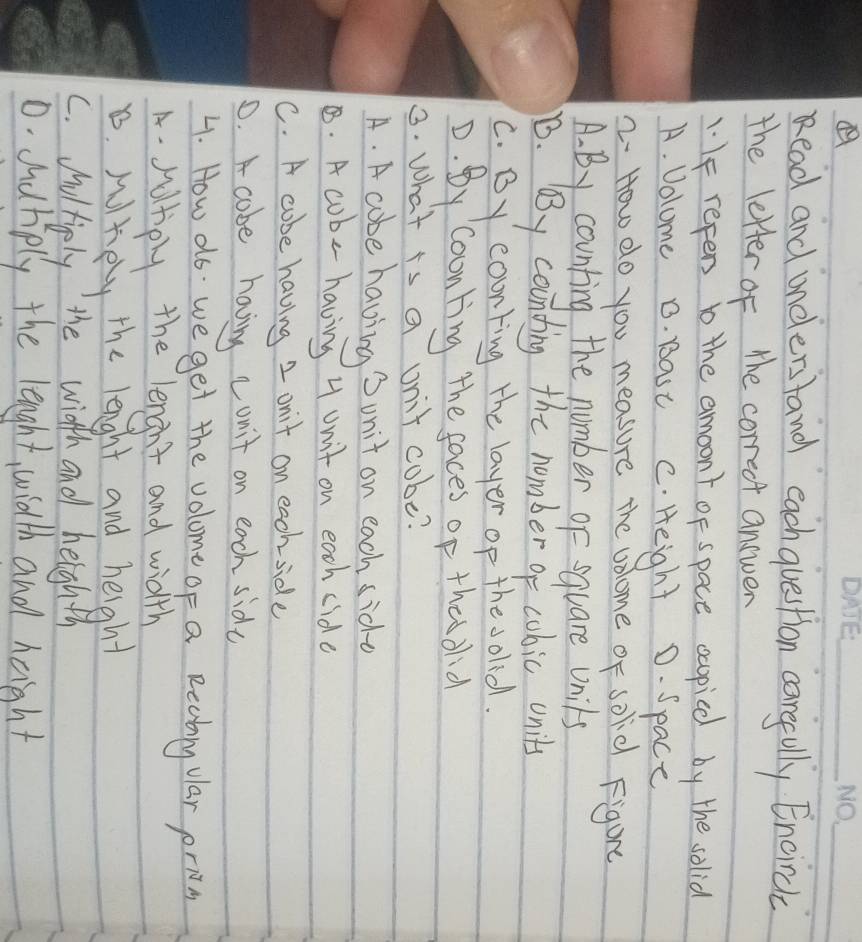 DATE NO.
Read and understand each question carefully. Encircle
the letter of the correct answer
1. IF refers to the amoont of space occupied by the solid
A. Volume B. Base C. Height D. Space
2- How do you measure the volume of solid Figure
A. By counting the number of square units
B. By counting the number of cubic units
C. By counting the layer of the solid.
D. By counting the faces of the solid
3. What is a unit cube?
A. A cube having 3 unit on each side
B. A cube having 4 unit on each side
C. A cube having 2 unit on each side
D. A cube having unit on each side
4. How do. we get the volume of a Rectangular prism
A. Multiply the lenght and width
B. Multiply the lenght and height
C. Multiply the width and heighth
D. Multiply the lenght, width and height